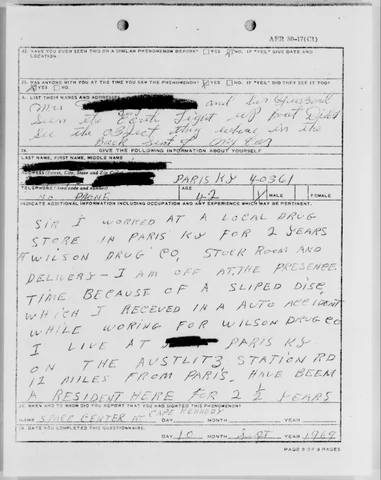 AFR 80-17(C1)
22. HAVE YOU EVER SEEN THIS OR A SIMILAR PHENOMENON BEFORE? YES NO IF "YES" GIVE DATE AND
LOCATION.
23. WAS ANYONE WITH YOU AT THE TIME YOU SAW THE PHENOMENON? YES NO IF "YES," DID THEY SEE IT TOO?
YES NO
A. LIST THEIR NAMES AND ADDRESSES
Mrs and her Husband
Seen the Earth Light up but Didnt
See the object they where in the
Back Seat of my Car
24. GIVE THE FOLLOWING INFORMATION ABOUT YOURSELF
LAST NAME, FIRST NAME, MIDDLE NAME
ADDRESS (Street, City, State and Zip Code)
PARIS KY 40361
TELEPHONE (Area code and number)
NO PHONE
AGE
42
MALE
FEMALE
INDICATE ADDITIONAL INFORMATION INCLUDING OCCUPATION AND ANY EXPERIENCE WHICH MAY BE PERTINENT.
SIR I WORKED AT A LOCAL DRUG
STORE IN PARIS KY FOR 2 YEARS
AT WILSON DRUG CO, STOCK ROOM AND
DELIVERY - I AM OFF AT THE PRESENCE
TIME BECAUSE OF A SLIPED DISC
WHICH I RECEVED IN A AUTO ACCIDENT
WHILE WORING FOR WILSON DRUG CO
I LIVE AT PARIS KY
ON THE AUSTLITZ, STATION RD
12 MILES FROM PARIS. HAVE BEEM
A RESIDENT HERE FOR 2 1/2 YEARS
25. WHEN AND TO WHOM DID YOU REPORT THAT YOU HAD SIGHTED THIS PHENOMENON?
SPACE CENTER AT CAPE KENNEDY DAY MONTH YEAR
26. DATE YOU COMPLETED THIS QUESTIONNAIRE. DAY 10 MONTH SEPT YEAR 1969
PAGE 9 OF 9 PAGES